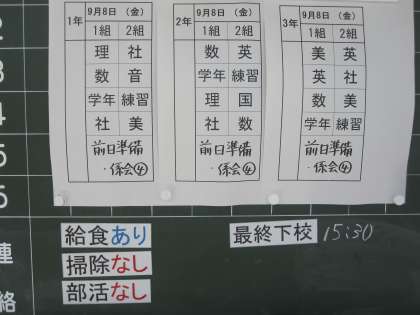 1年
9月8日 (金)
1組 2組
理 社
数 音
学年 練習
社 美
前日準備
・係会④
2年
9月8日 (金)
1組 2組
数 英
学年 練習
理 国
社 数
前日準備
・係会④
3年
9月8日 (金)
1組 2組
美 英
英 社
数 美
学年 練習
前日準備
・係会④
3
4
5
6
連
絡
給食あり
掃除なし
部活なし
最終下校 15:30